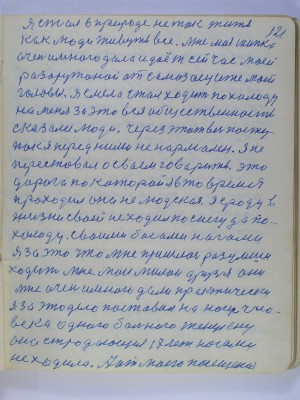 121
Я стал в природе не так жить
как люди живуть все. Мне моя шапка
очень много дала идаёт сейчас моей
разгруженой от самозащите моей
головы. Я смела стал ходить по холоду
на меня за это вся общественность
сказали люди, через этот твой посту-
пок я перед ними не нармален. Я не
перестовал о своем говорить. это
дорога по которой я в то время
проходил она не людская. Я сроду в
жизни своей не ходил по снегу да по-
холоду. своими босами ногами
я за это что мне пришлось разумши
ходить мне мои милаи друзя они
мне очень много дали практически
я за это дело поставил на ноги чело-
века одного болного женщену
она страдающия 17 лет ногами
не ходила. А от моего помещения